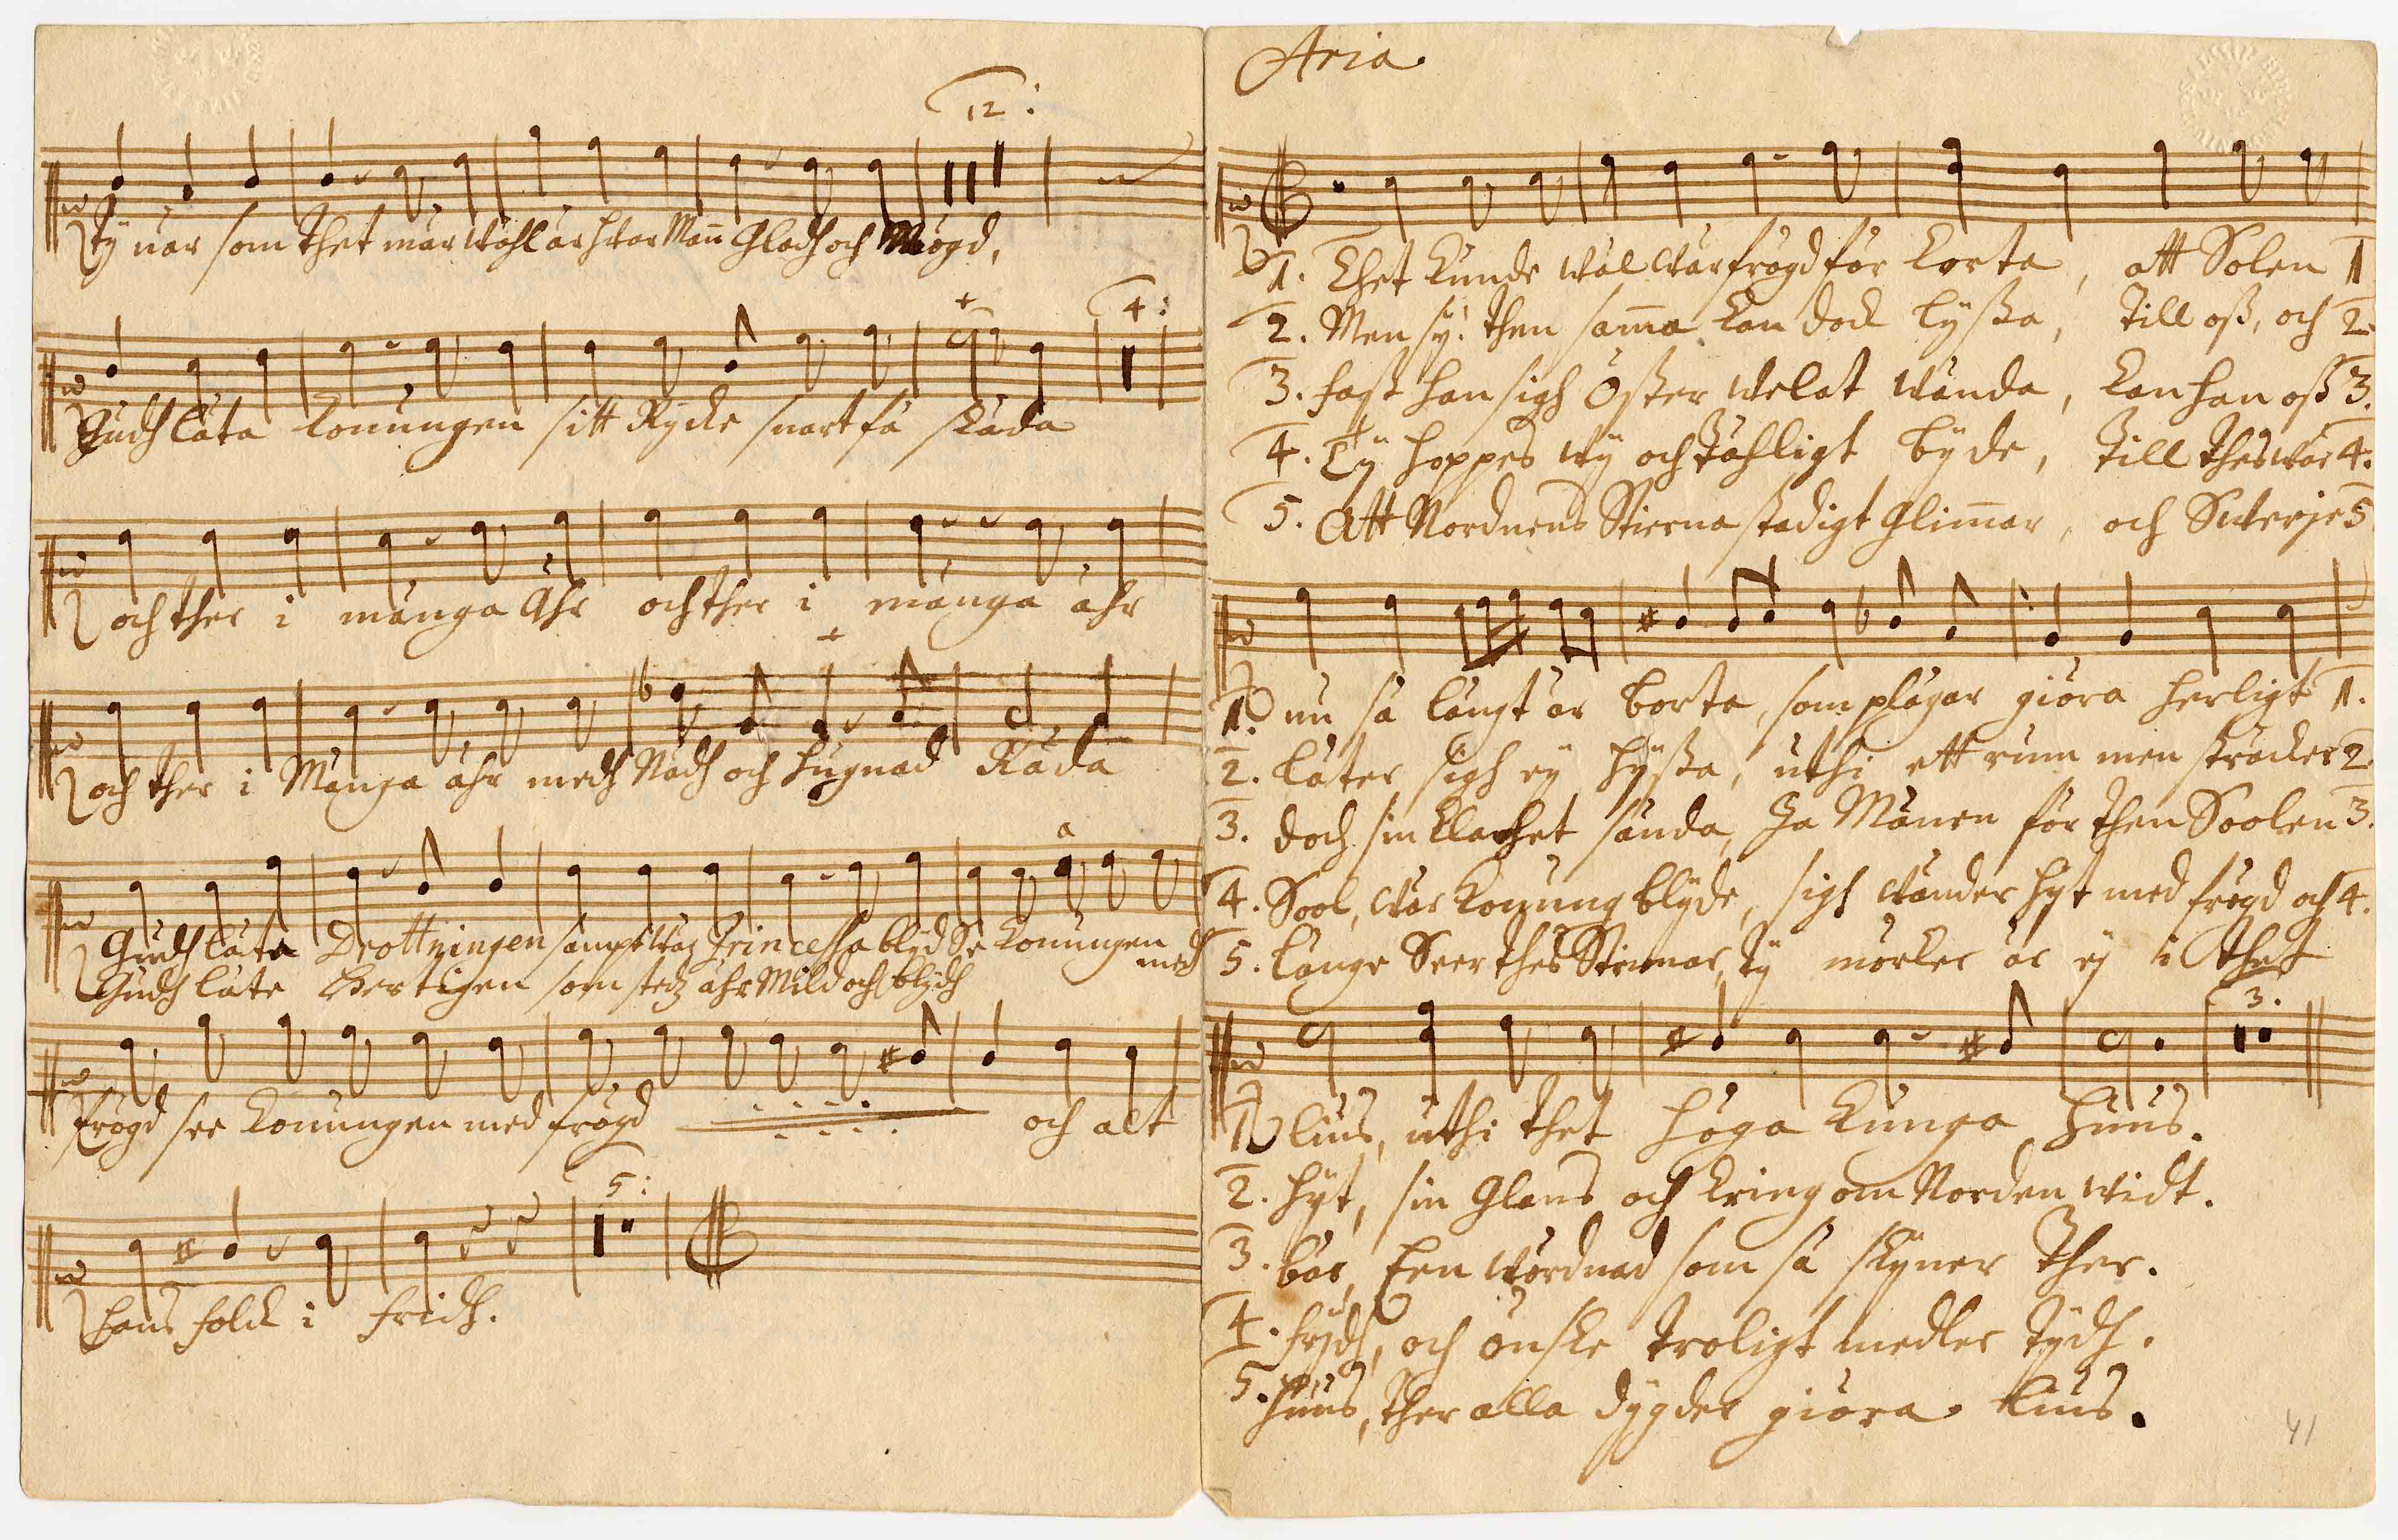 12:
Ty når som thet mår wähl är hwar Man Gladh och Nögd,
4:
Gudh låta konungen sitt Rycke snart få skåda
och ther i många åhr och ther i många åhr
och ther i Många åhr medh Nådh och hugnad Råda
a
Gudh låta Drottningen sampt Princessa blijd Se konungen med
Gudh låte Hertigen som stedz ähr Mild och blijdh
frögd see konungen med frögd och alt
5:
hans folck i fridh.
Aria
1. Thet kunde wäl wår frögd för korta, att Solen 1
2. Men sy! then samma kan dock lyssa, till oss, och 2.
3. fast han sigh Öster welat wända, kan han oss 3.
4. Ty hoppes wy och tåhligt byde, till thes wår 4.
5. Att Nordnens Stierna stadigt Glimar, och Swerje 5
1. nu så långt är borta, som plägar giöra herligt 1.
2. låter sigh ey hyssa, uthi ett rum men sträcker 2.
3. doch sin klarhet sända, Ja Månen för then Soolen 3.
4. Sool, wår Konung blyde, sigh wänder hyt med frögd och 4.
5. länge Seer thes Strimar, ty mörker är ej i thet
3.
1 lius, uthi thet höga kunga huus.
2. hyt, sin Glans och kring om Norden widt.
3. bär, Een wördnad som så skyner ther.
4. frydh, och önske troligt medler tydh.
5. huus, ther alla dygder giöra lius.
41